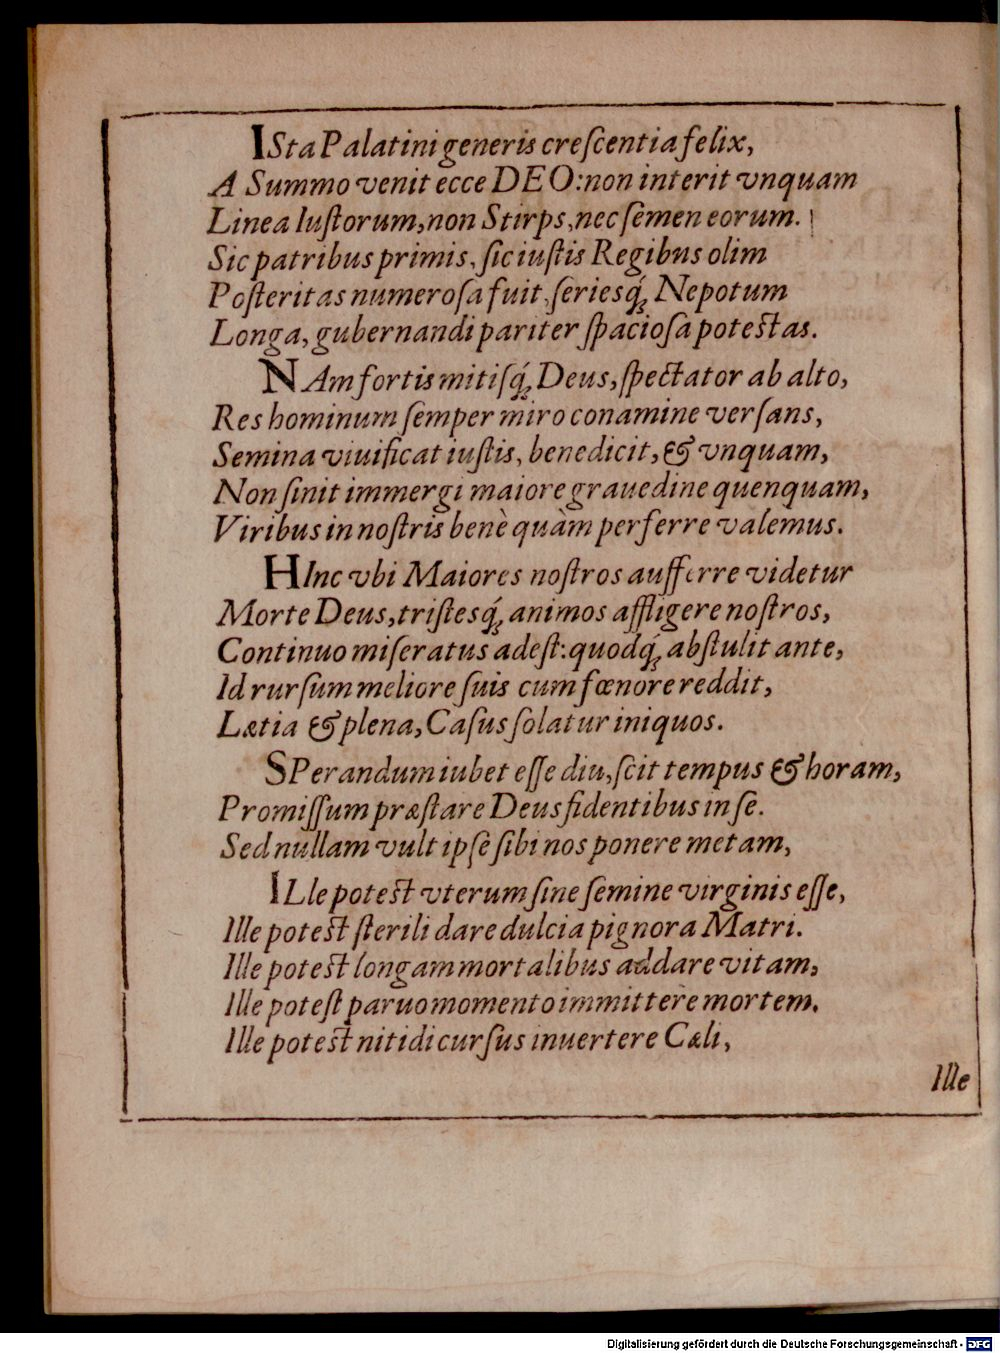 ISta Palatini generis creſcentia felix,
A Summo venit ecce DEO: non interit vnquam
Linea Iuſtorum, non Stirps, nec ſemen eorum.
Sic patribus primis, ſic iuſtis Regibus olim
Poſteritas numeroſa fuit, ſeriesq́; Nepotum
Longa, gubernandi pariter ſpacioſa poteſtas.
NAm fortis mitiſq́; Deus, ſpectator ab alto,
Res hominum ſemper miro conamine verſans,
Semina viuificat iuſtis, benedicit, & vnquam,
Non ſinit immergi maiore grauedine quenquam,
Viribus in noſtris benè quàm perferre valemus.
HInc vbi Maiores noſtros aufferre videtur
Morte Deus, triſtesq́; animos affligere noſtros,
Continuo miſeratus adeſt: quodq́; abſtulit ante,
Id rurſum meliore ſuis cum fœnore reddit,
Lætia & plena, Caſus ſolatur iniquos.
SPerandum iubet eſſe diu, ſcit tempus & horam,
Promiſſum præſtare Deus fidentibus in ſe.
Sed nullam vult ipſe ſibi nos ponere metam,
ILle poteſt vterum ſine ſemine virginis eſſe,
Ille poteſt ſterili dare dulcia pignora Matri.
Ille poteſt longam mortalibus addare vitam,
Ille poteſt paruo momento immittere mortem.
Ille poteſt nitidi curſus inuertere Cæli,
Ille
Digitalisierung gefördert durch die Deutsche Forschungsgemeinschaft - DFG